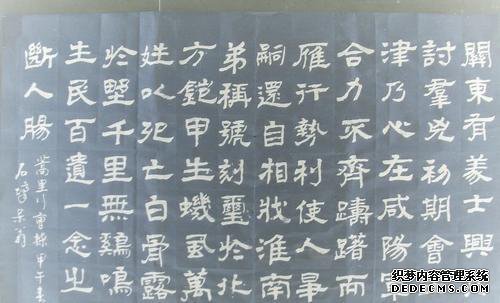 關東有義士興
討羣兇初期會
津乃心在咸陽軍
合力不齊躊躇而
雁行勢利使人爭
嗣還自相戕淮南
弟稱號刻璽於北
方鎧甲生蟣虱萬
姓以死亡白骨露
於墅千里無鷄鳴
生民百遺一念之
斷人腸
蒿里行 曹操 甲午春
织梦内容管理系统
DEDECMS.COM